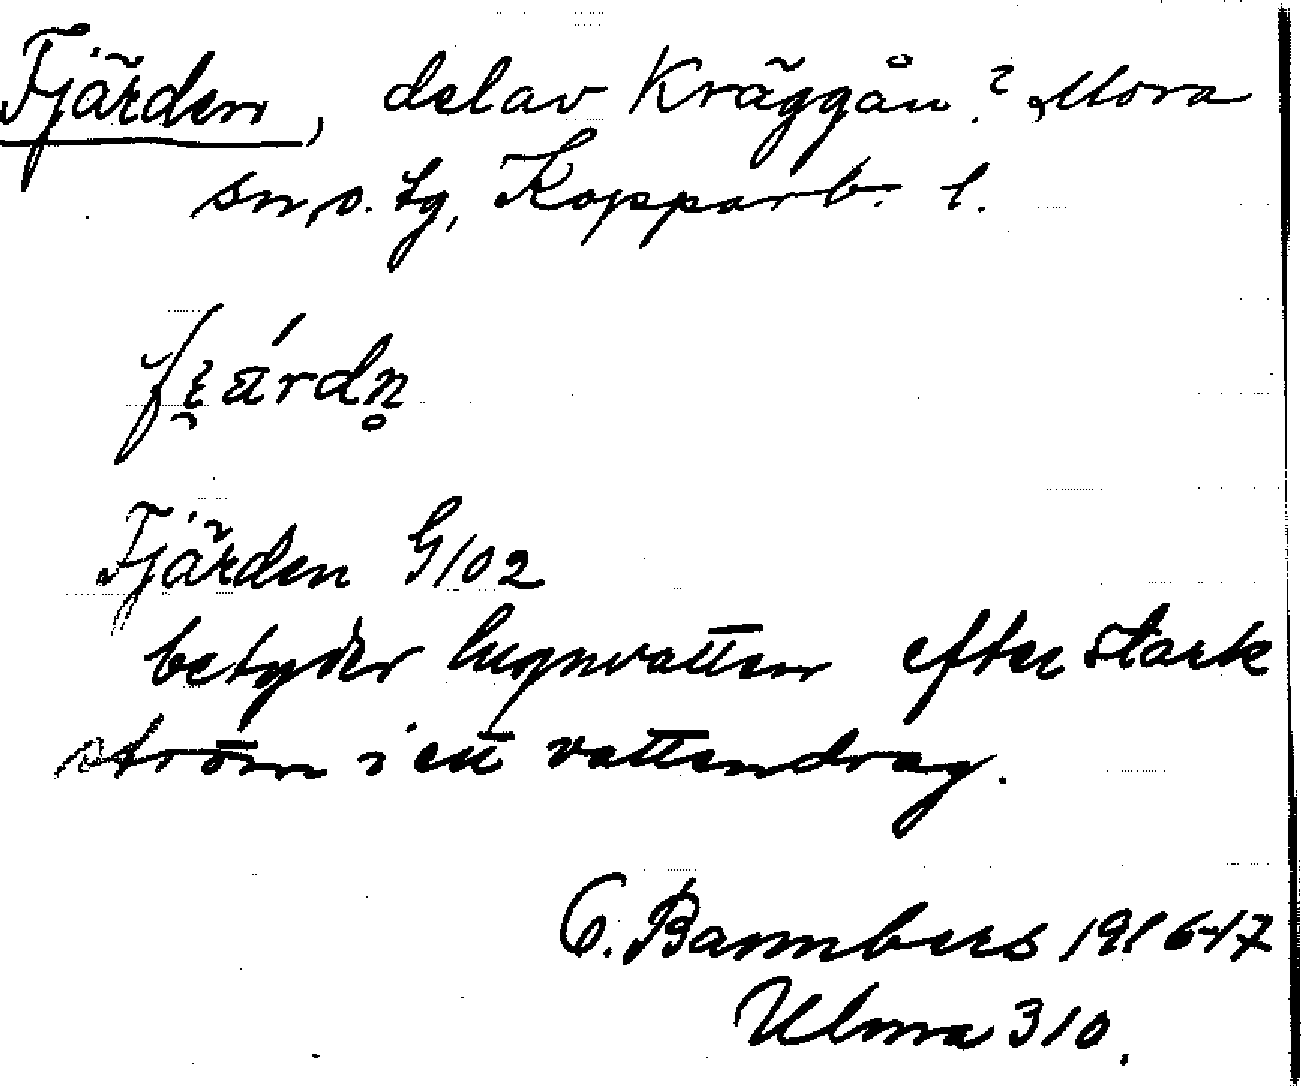 Fjärden, del av Kräggån? Mora
sn o. tg, Kopparb. l.
fi̯ärdn̥
Fjärden G102
betyder lugnvatten efter stark
ström i ett vattendrag.
O. Bannbers 1916-17
Ulma 310.